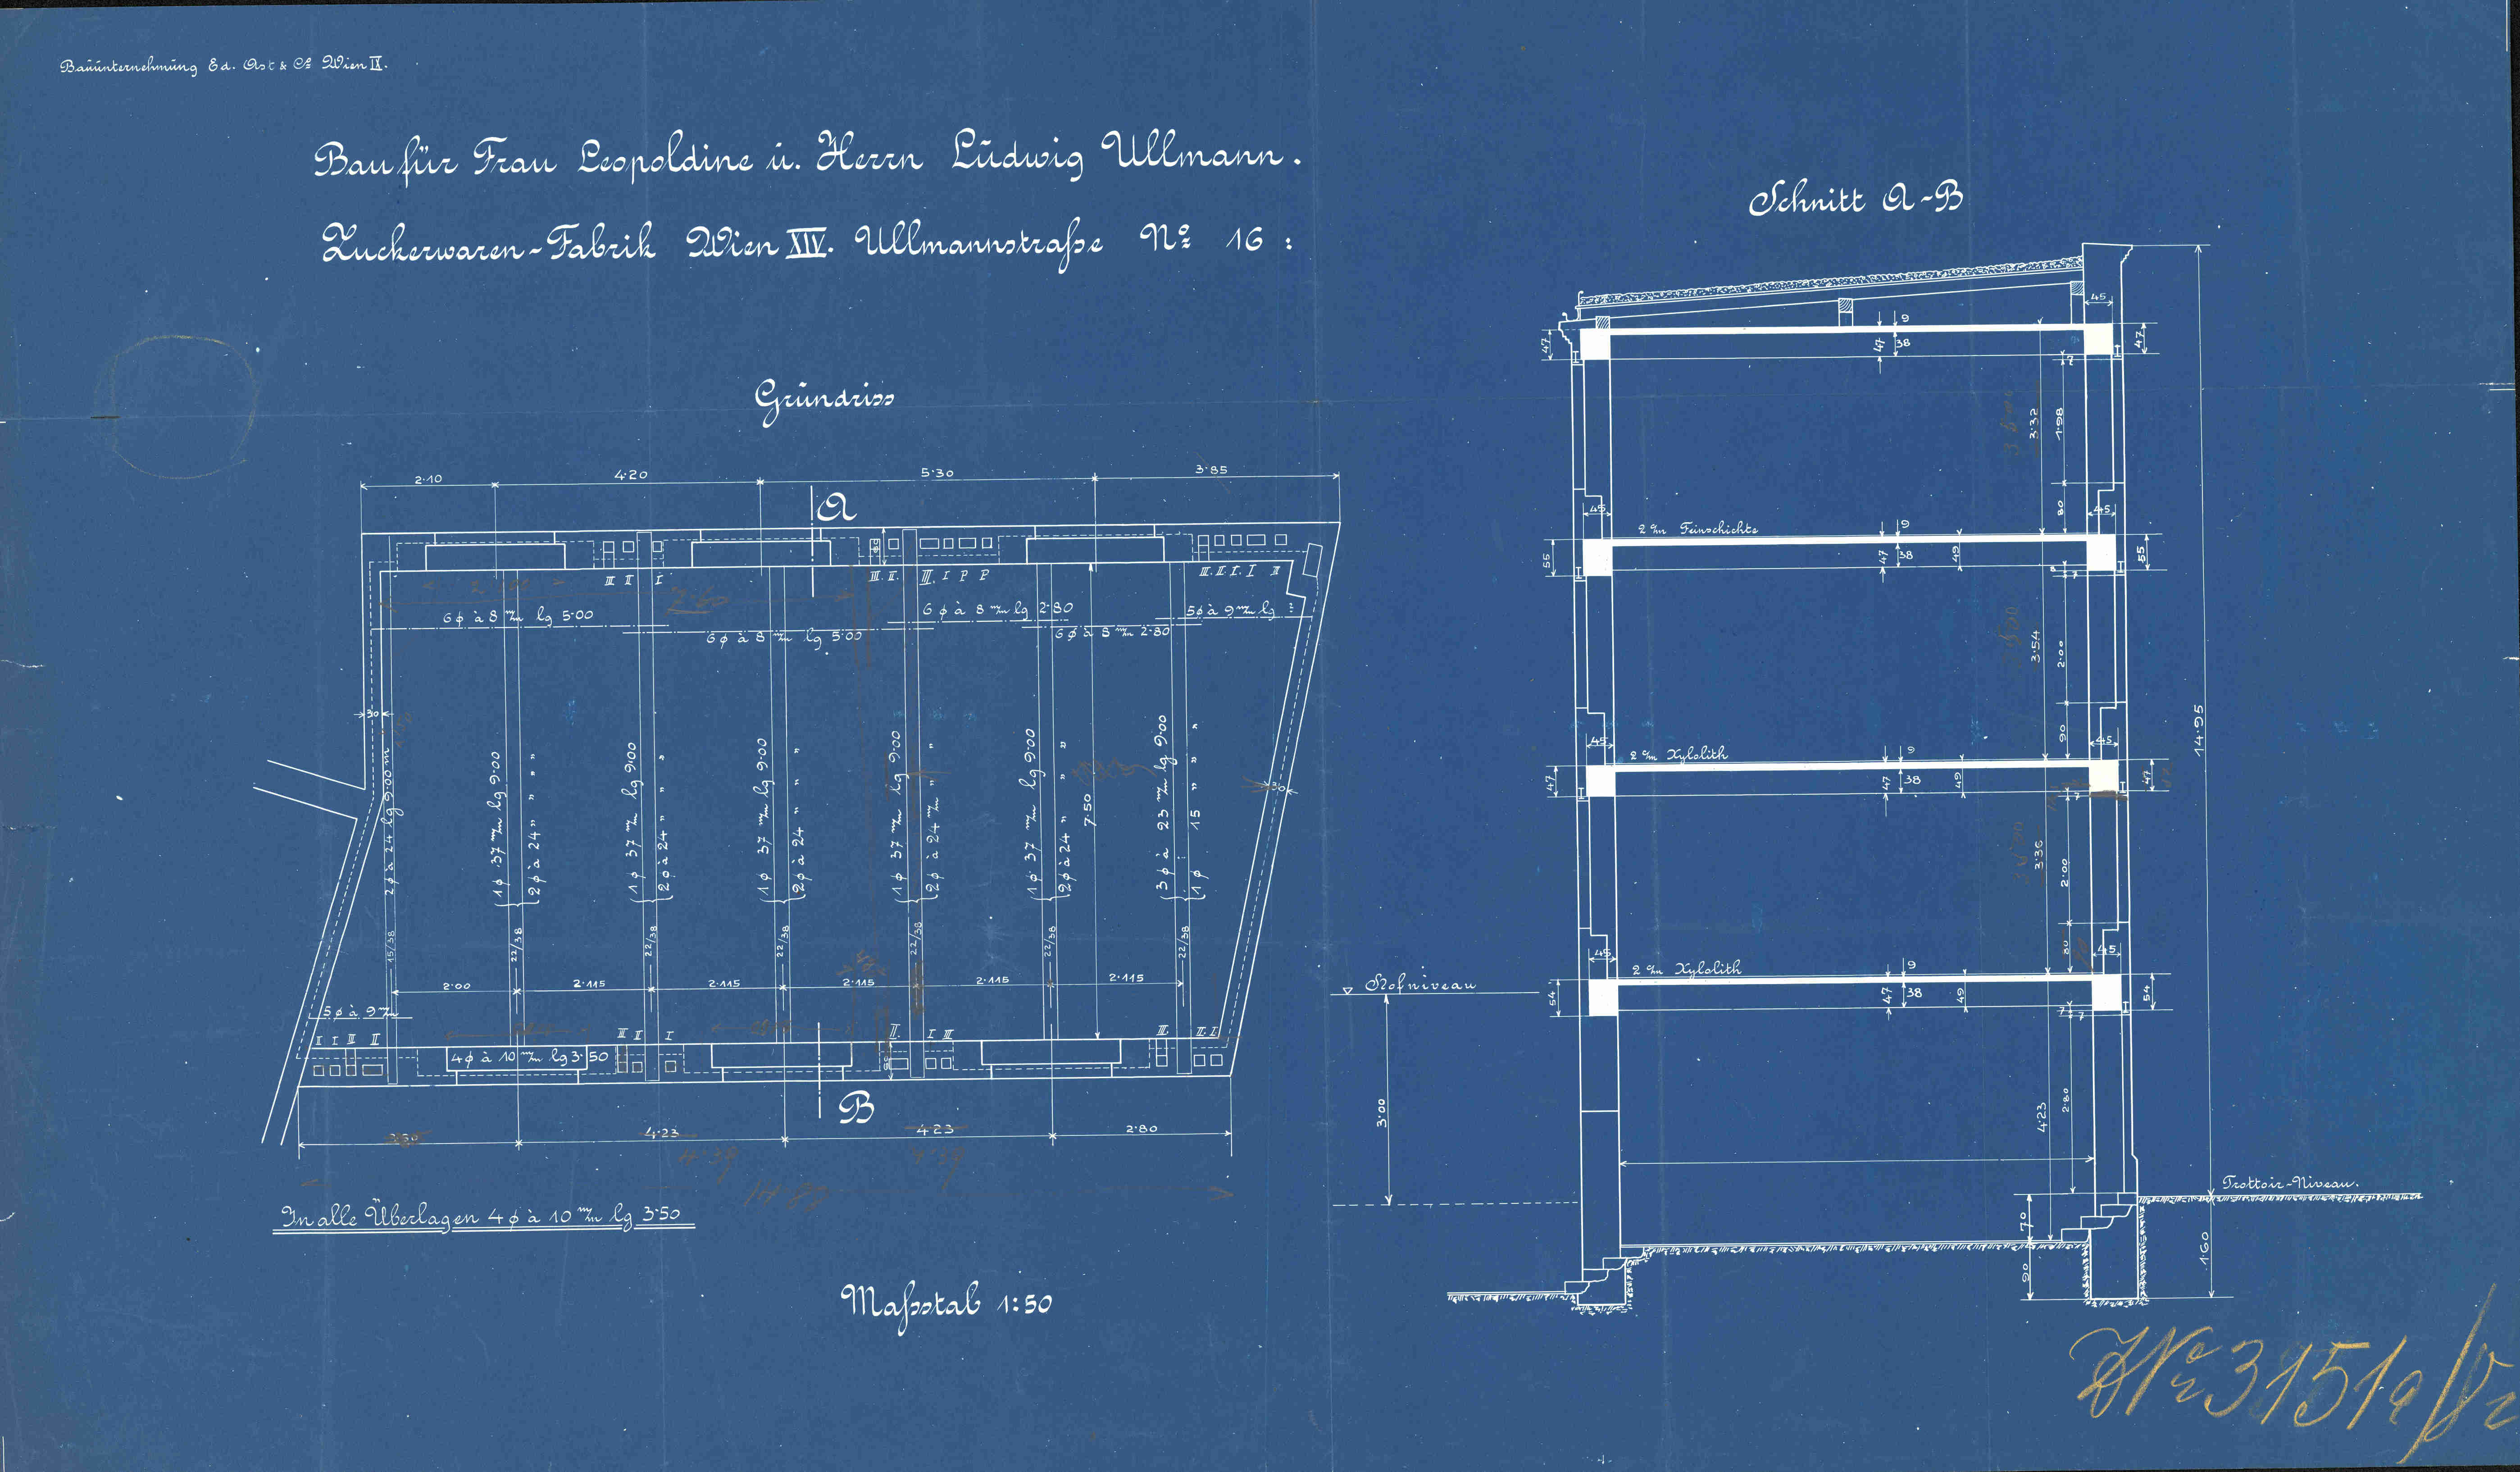 Bauunternehmung Ed. Ast & Co Wien IX.
Bau für Frau Leopoldine u. Herrn Ludwig Ullmann.
Zuckerwaren-Fabrik Wien XIV. Ullmannstraße No 16 :
Grundriss
2·10 4·20 5·30 3·85
A
III II I III. II. III. I P P III. II. I. I II
6 ϕ à 8 m/m lg 5·00
6 ϕ à 8 m/m lg 5·00
6 ϕ à 8 m/m lg 2·80
6 ϕ à 8 m/m 2·80
5 ϕ à 9 m/m lg
30
2 ϕ à 24 lg 9·00 m
1 ϕ 37 m/m lg 9·00
2 ϕ à 24 " " " "
1 ϕ 37 m/m lg 9·00
2 ϕ à 24 " " "
1 ϕ 37 m/m lg 9·00
2 ϕ à 24 " " "
1 ϕ 37 m/m lg 9·00
2 ϕ à 24 m/m " "
1 ϕ 37 m/m lg 9·00
2 ϕ à 24 " " "
7·50
3 ϕ à 23 m/m lg 9·00
1 ϕ 15 " " "
15/38 22/38 22/38 22/38 22/38 22/38 22/38
2·00 2·115 2·115 2·115 2·115 2·115
5 ϕ à 9 m/m
I I II II III II I II. I III III. II. I
4 ϕ à 10 m/m lg 3·50
B
4·23 4·23 2·80
In alle Überlagen 4 ϕ à 10 m/m lg 3·50
Maßstab 1:50
Schnitt A-B
45
47 9 38 47 47
3·32 1·98
80
45 45
2 c/m Feinschichte
9 47 38 49
55 55
3·54 2·00
90
45 45
2 c/m Xylolith
9 47 38 49
47 47
14·95
3·36 2·00
80
45 45
2 c/m Xylolith
9 47 38 49
54 54
Hofniveau
3·00
4·23 2·80
Trottoir-Niveau.
70
90
1·60
No 3151a